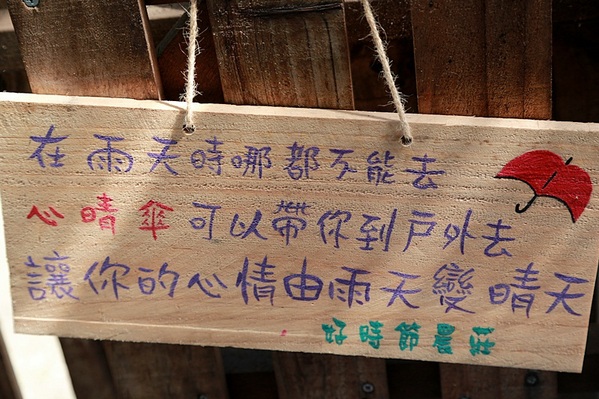 在雨天時哪都不能去
心晴傘可以帶你到戶外去
讓你的心情由雨天變晴天
好時節農莊